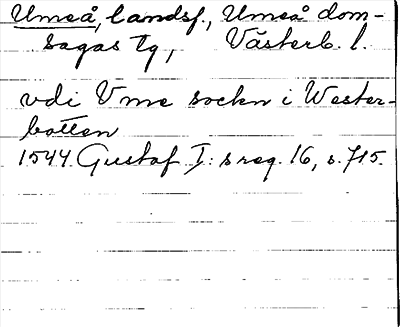 Umeå, landsf., Umeå dom-
sagas tg, Västerb. l.
vdi Vme sockn i Wester-
botten
1544 Gustaf I: s reg. 16, s. 715.